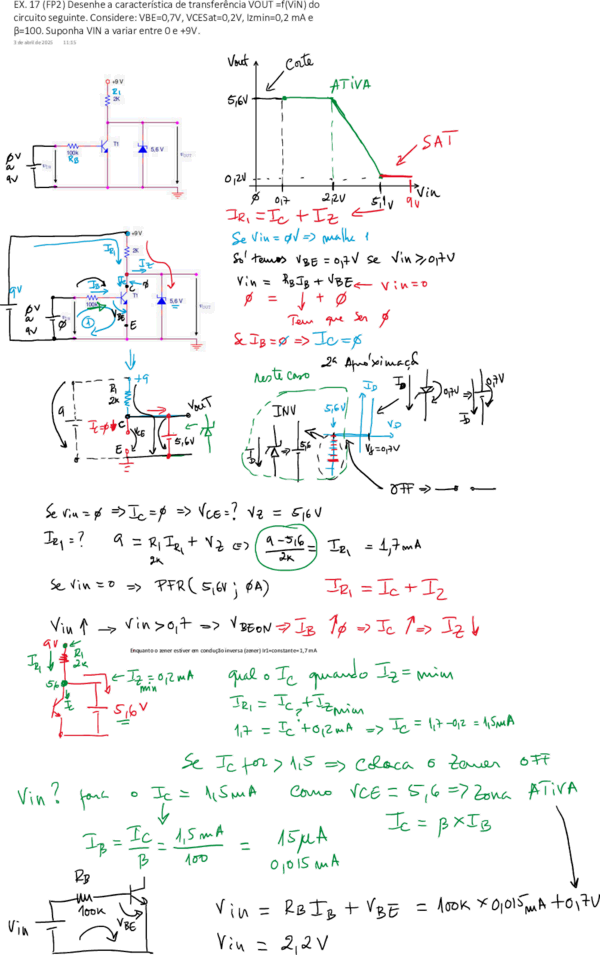 EX. 17 (FP2) Desenhe a característica de transferência VOUT =f(ViN) do
circuito seguinte. Considere: VBE=0,7V, VCESat=0,2V, Izmin=0,2 mA e
β=100. Suponha VIN a variar entre 0 e +9V.
3 de abril de 2025 11:15
+9 V
R1
2K
100k
RB
T1
5,6 V
VOUT
ØV
a
9V
Vout
Corte
ATIVA
5,6V
SAT
0,2V
Ø
0,7
2,2V
5,1V
9V
Vin
IR1 = IC + IZ
Se Vin = ØV => malha 1
Só temos VBE = 0,7V se Vin ≥ 0,7V
Vin = RB IB + VBE ← Vin = 0
Ø = ↓ + Ø
Tem que ser Ø
Se IB = Ø => IC = Ø
+9V
IR1
2K
IZ
9V
IB
C
Ø
100k
T1
5,6 V
VBE
E
1
ØV
a
9V
Ø
VOUT
+9
R1
2K
9
VOUT
I=Ø
C
VCE
5,6V
E
2ª Apróximaçã
neste caso
INV
5,6V
ID
0,7V
0,7V
ID
ID
5,6
VD
Vγ=0,7V
OFF =>
Se vin = Ø => IC = Ø => VCE = ? VZ = 5,6V
IR1 = ? 9 = R1 IR1 + VZ <=> 9-5,6 = IR1 = 1,7mA
2k 2k
Se Vin = 0 => PFR( 5,6V ; ØA) IR1 = IC + IZ
Vin ↑ → Vin > 0,7 => VBEON => IB ↑Ø => IC ↑ => IZ ↓
Enquanto o zener estiver em condução inversa (zener) Ir1=constante= 1,7 mA
9V
IR1
R1
2k
← IZ = 0,2mA
min
5,6
IC
5,6V
qual o IC quando IZ = min
IR1 = IC + IZmin
?
1,7 = IC + 0,2mA => IC = 1,7-0,2 = 1,5mA
Se IC for > 1,5 => coloca o zener OFF
Vin? para o IC = 1,5mA como VCE = 5,6 => Zona ATIVA
IC = β x IB
IB = IC/β = 1,5mA/100 = 15µA
0,015mA
RB
100K
Vin
VBE
Vin = RB IB + VBE = 100K x 0,015mA + 0,7V
Vin = 2,2V